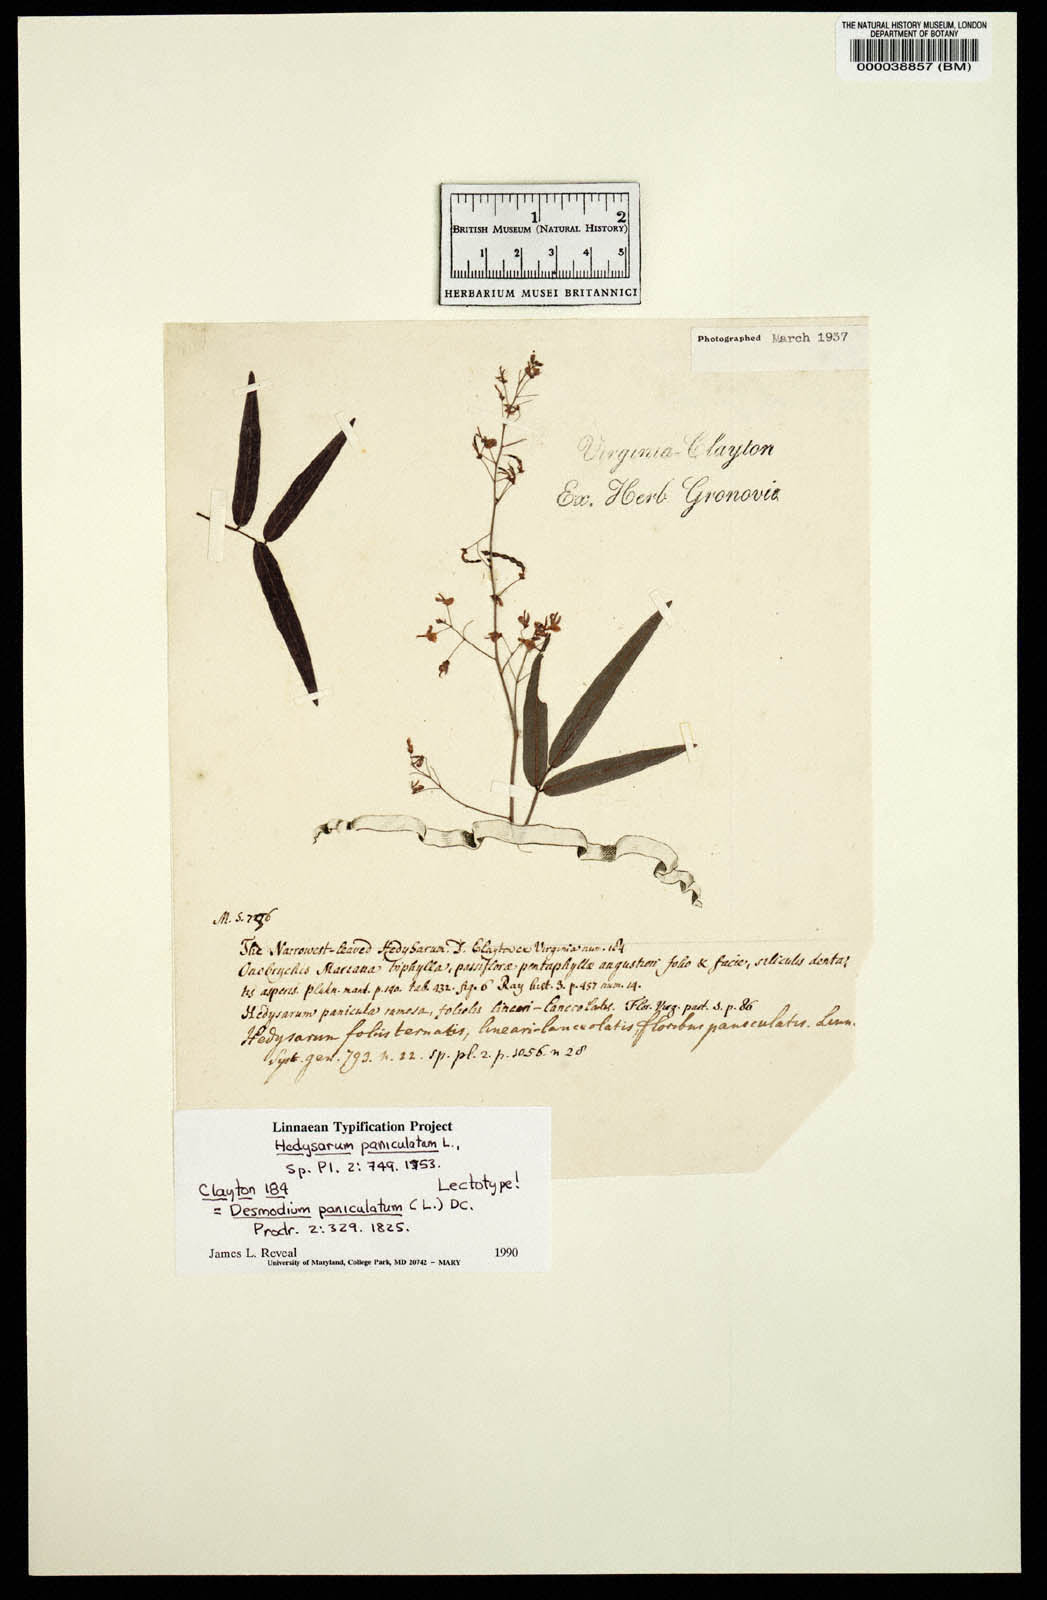 THE NATURAL HISTORY MUSEUM, LONDON
DEPARTMENT OF BOTANY
000038857 (BM)
1 2
BRITISH MUSEUM (NATURAL HISTORY)
1 2 3 4 5
HERBARIUM MUSEI BRITANNICI
Photographed March 1937
Virginia-Clayton
Ex. Herb Gronovii
M. S.
The Narrowest-leaved Hedysarum. D. Clayton ex Virginia num. 184
Onobrychis Mareana triphylla, passifloræ pentaphyllæ angustiori folio & facie, siliculis denta:
tis asperis. Plukn. mant. p. 140. tab. 432. fig. 6 Ray hist. 3. p. 457 num. 14.
Hedysarum panicula ramosa, foliolis lineari-lanceolatis. Flor. Virg. part. 2. p. 86
Hedysarum foliis ternatis, lineari-lanceolatis, floribus paniculatis. Linn.
Syst. gen. 793. n. 22. sp. pl. 2. p. 1056. n 28
Linnaean Typification Project
Hedysarum paniculatum L.,
Sp. Pl. 2: 749. 1753.
Clayton 184 Lectotype!
= Desmodium paniculatum (L.) DC.
Prodr. 2: 329. 1825.
James L. Reveal 1990
University of Maryland, College Park, MD 20742 – MARY